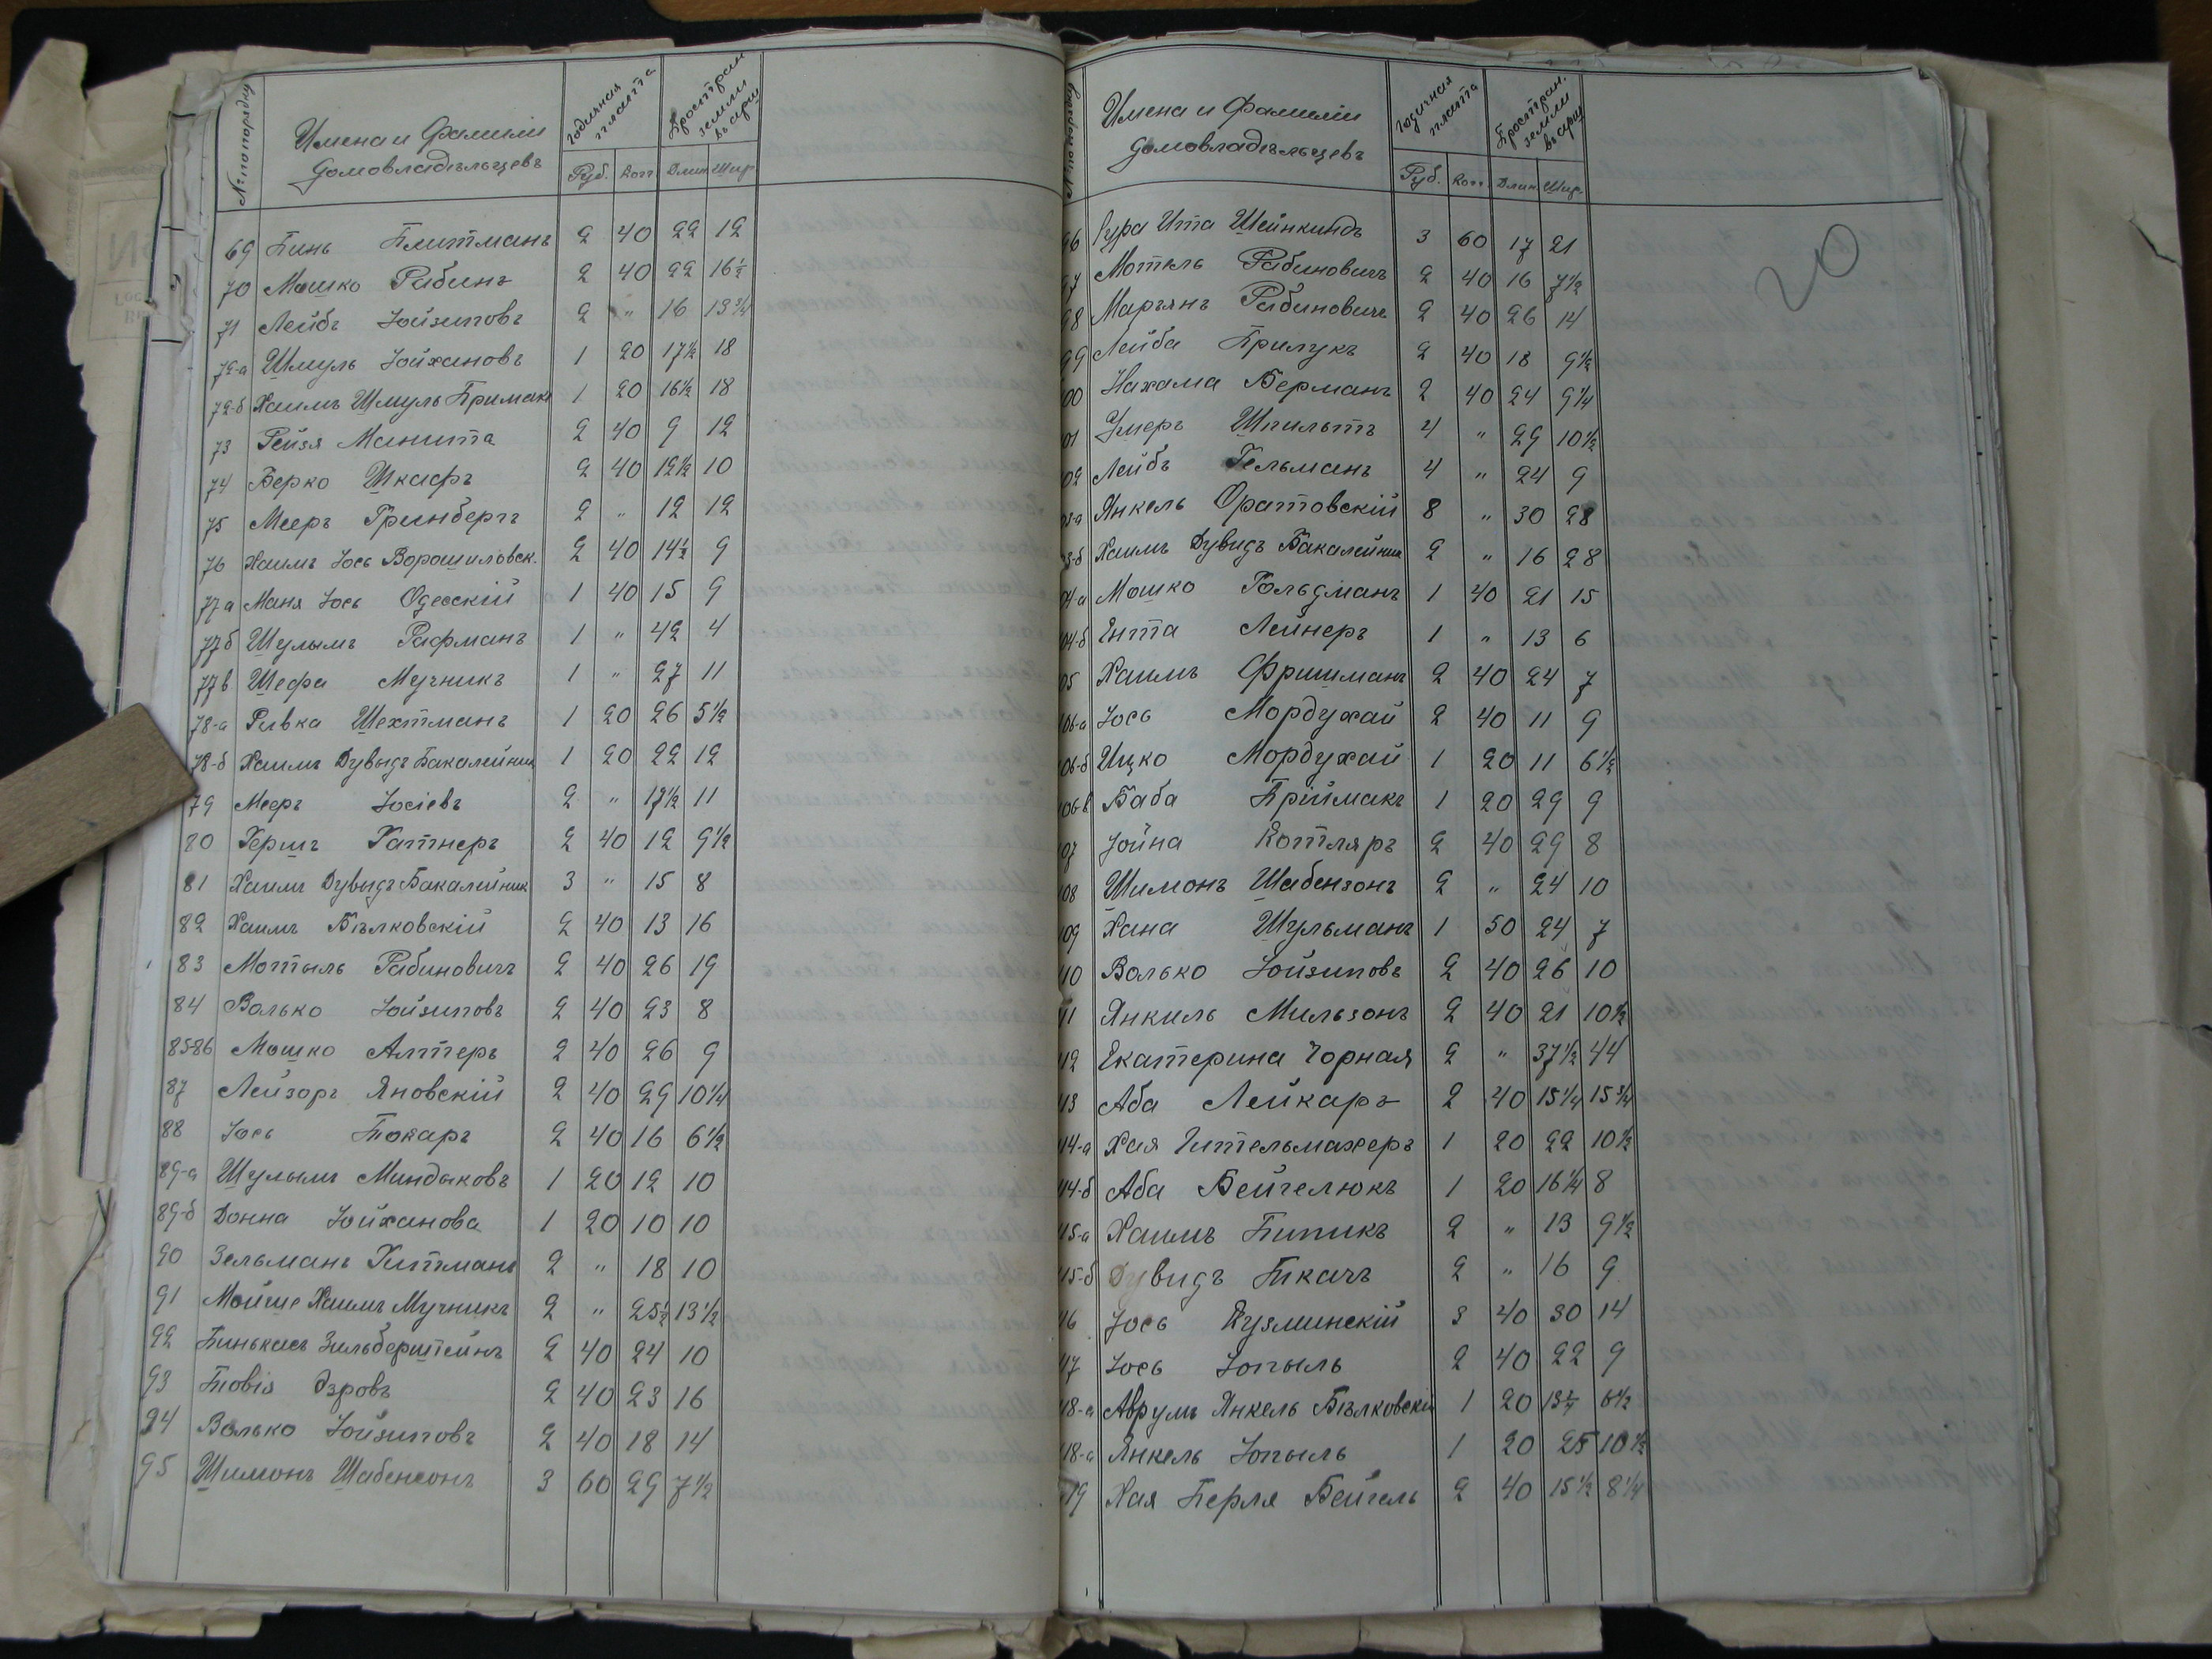 № по порядку
Имена и Фамиліи домовладѣльцевъ
Годичная плата
Простран. земли въ арш
Руб. Коп. Длин. Шир.
69 Пинь Плитманъ 2 40 22 12
70 Мошко Рабинъ 2 40 22 16½
71 Лейбъ Іойзиповъ 2 " 16 13¾
72-а Шмуль Іойхановъ 1 20 17½ 18
72-б Хаимъ Шмуль Примакъ 1 20 16½ 18
73 Рейзя Манита 2 40 9 12
74 Берко Шкафъ 2 40 12½ 10
75 Мееръ Гринбергъ 2 " 12 12
76 Хаимъ Іось Ворошиловск. 2 40 14½ 9
77а Маня Іось Одесскій 1 40 15 9
77б Шулымъ Рафманъ 1 " 42 4
77в Шефа Мучникъ 1 " 27 11
78-а Ривка Шехтманъ 1 20 26 5½
78-б Хаимъ Дувыдъ Бакалейник 1 20 22 12
79 Мееръ Іосіевъ 2 " 17½ 11
80 Гершъ Ратнеръ 2 40 12 9½
81 Хаимъ Дувыдъ Бакалейник 3 " 15 8
82 Хаимъ Бѣлковскій 2 40 13 16
83 Мотыль Рабиновичъ 2 40 26 19
84 Волько Іойзиповъ 2 40 23 8
85-86 Мошко Алтеръ 2 40 26 9
87 Лейзоръ Яновскій 2 40 29 10¼
88 Іось Токаръ 2 40 16 6½
89-а Шулымъ Миндыковъ 1 20 12 10
89-б Донна Іойханова 1 20 10 10
90 Зельманъ Хитманъ 2 " 18 10
91 Мойше Хаимъ Мучникъ 2 " 25½ 13½
92 Пинькасъ Зильберштейнъ 2 40 24 10
93 Товія Озровъ 2 40 23 16
94 Волько Іойзиповъ 2 40 18 14
95 Шимонъ Шабенсонъ 3 60 29 7½
№ по порядку
Имена и Фамиліи домовладѣльцевъ
Годичная плата
Простран. земли въ арш
Руб. Коп. Длин. Шир.
20
96 Сура Ита Шейнкиндъ 3 60 17 21
97 Мотель Рабиновичъ 2 40 16 7½
98 Марьянъ Рабиновичъ 2 40 26 14
99 Лейба Прилукъ 2 40 18 9½
00 Нахама Берманъ 2 40 24 9¼
01 Умеръ Шпильтъ 4 " 29 10½
02 Лейбъ Гельманъ 4 " 24 9
03-а Янкель Оратовскій 8 " 30 28
03-б Хаимъ Дувидъ Бакалейник 2 " 16 28
04-а Мошко Гольдманъ 1 40 21 15
04-б Ента Лейнеръ 1 " 13 6
05 Хаимъ Фришманъ 2 40 24 7
06-а Іось Мордухай 2 40 11 9
06-б Ицко Мордухай 1 20 11 6½
06-в Баба Пріймакъ 1 20 29 9
07 Іойна Котляръ 2 40 29 8
08 Шимонъ Шабензонъ 2 " 24 10
09 Хана Шульманъ 1 50 24 7
10 Волько Іойзиповъ 2 40 26 10
11 Янкиль Мильзонъ 2 40 21 10½
12 Екатерина Чорная 2 " 37½ 44
13 Аба Лейкаръ 2 40 15¼ 15¾
14-а Хая Гительмахеръ 1 20 22 10½
14-б Аба Бейгелюкъ 1 20 16¼ 8
15-а Хаимъ Пипикъ 2 " 13 9½
15-б Дувидъ Ткачъ 2 " 16 9
16 Іось Кузминскій 3 40 30 14
17 Іось Іопыль 2 40 22 9
18-а Аврумъ Янкель Бѣлковскій 1 20
18-а Янкель Іопыль 1 20 25 10½
19 Хая Перля Бейгель 2 40 15½ 8¼